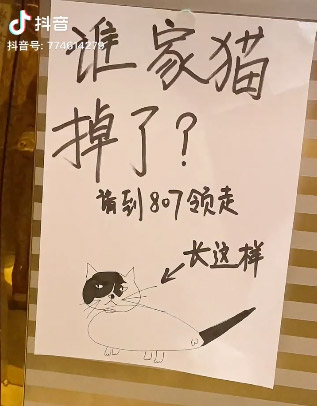 抖音
抖音号: 774614279
谁家猫
掉了?
请到807领走
长这样